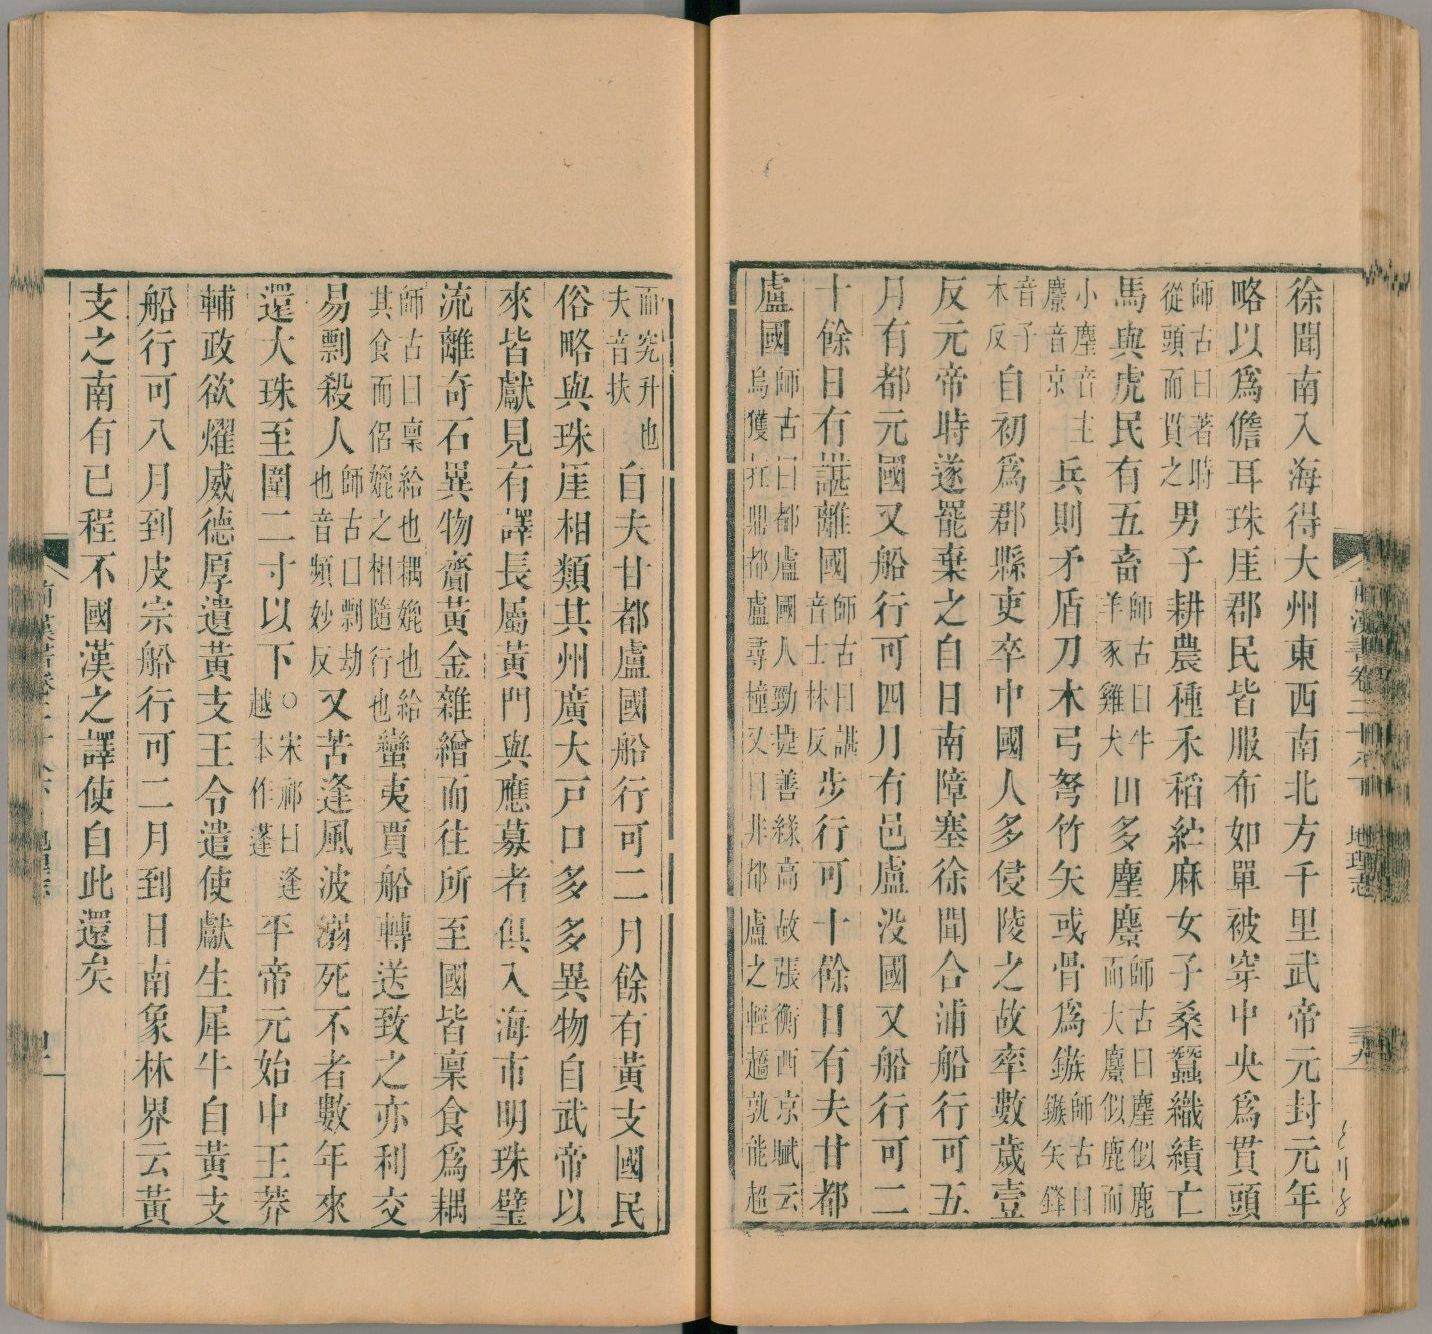 徐聞南入海得大州東西南北方千里武帝元封元年
略以爲儋耳珠厓郡民皆服布如單被穿中央爲貫頭
師古曰著時從頭而貫之男子耕農種禾稻紵麻女子桑蠶織績亡
馬與虎民有五畜師古曰牛羊豕雞犬山多麈麖師古曰麈似鹿而大麖似鹿而
小麈音主麖音京兵則矛盾刀木弓弩竹矢或骨爲鏃師古曰鏃矢鋒
音子木反自初爲郡縣吏卒中國人多侵陵之故率數歲壹
反元帝時遂罷棄之自日南障塞徐聞合浦船行可五
月有都元國又船行可四月有邑盧没國又船行可二
十餘日有諶離國師古曰諶音士林反步行可十餘日有夫甘都
盧國師古曰都盧國人勁捷善緣高故張衡西京賦云烏獲扛鼎都盧尋橦又曰非都盧之輕趫孰能超
而究升也夫音扶自夫甘都盧國船行可二月餘有黃支國民
俗略與珠厓相類其州廣大戸口多多異物自武帝以
來皆獻見有譯長屬黃門與應募者俱入海市明珠璧
流離奇石異物齎黃金雜繒而往所至國皆稟食爲耦
師古曰稟給也耦媲也給其食而侶媲之相隨行也蠻夷賈船轉送致之亦利交
易剽殺人師古曰剽劫也音頻妙反又苦逢風波溺死不者數年來
還大珠至圍二寸以下○宋祁曰逢越本作蓬平帝元始中王莽
輔政欲燿威德厚遺黃支王令遣使獻生犀牛自黃支
船行可八月到皮宗船行可二月到日南象林界云黃
支之南有已程不國漢之譯使自此還矣
前漢書卷二十八下
地理志